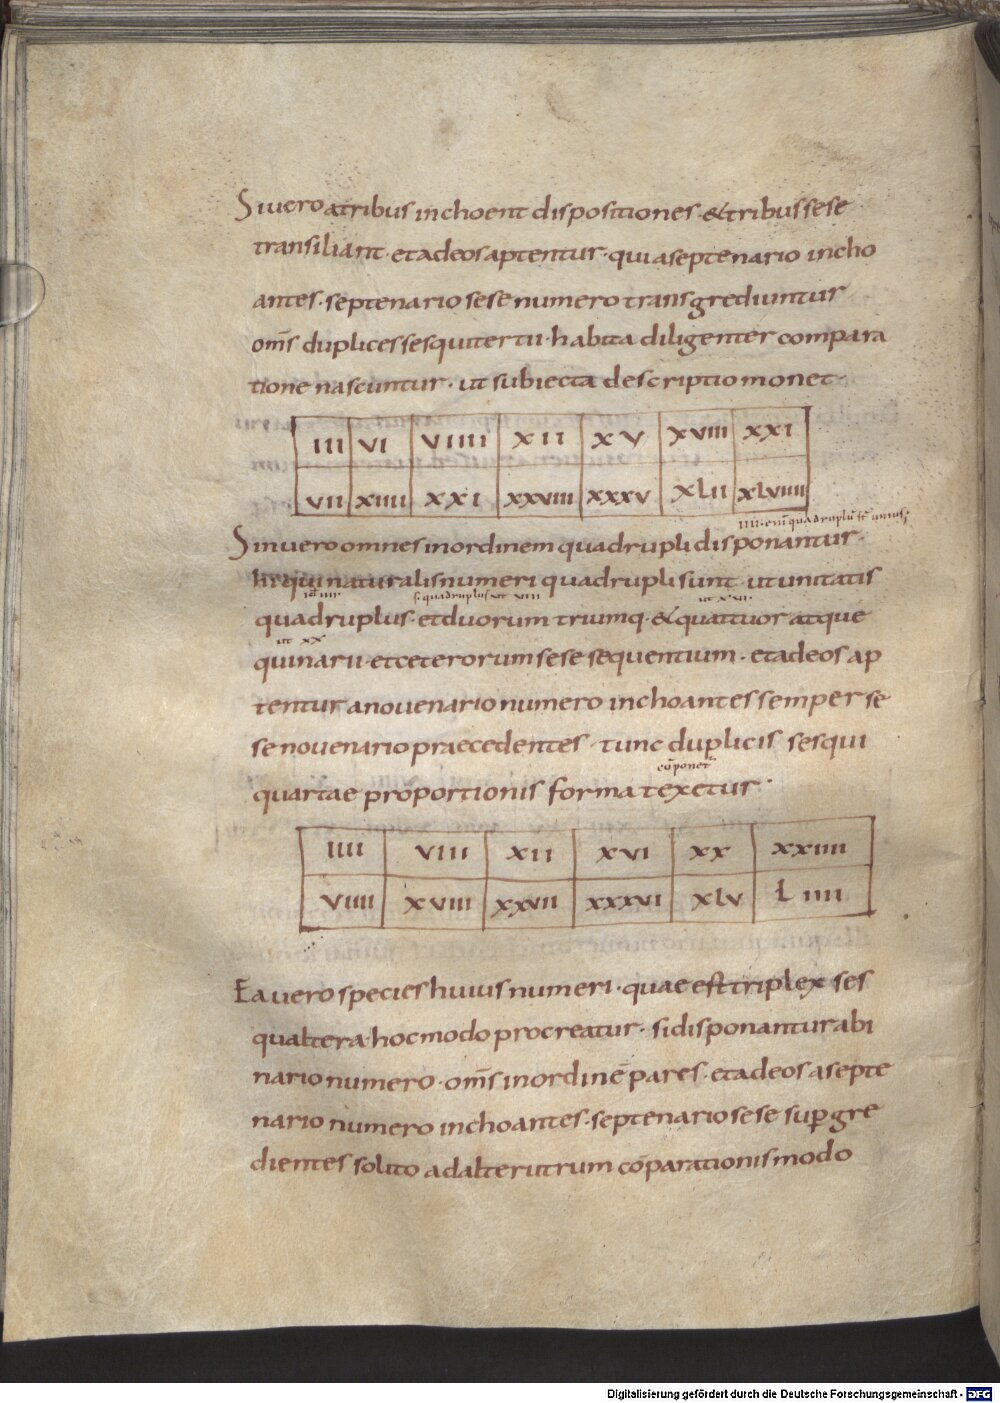 Si uero a tribus inchoent dispositiones · & tribus sese
transiliant · et ad eos aptentur · qui a septenario incho
antes · septenario sese numero transgrediuntur
om̄s duplices sesquitertii · habita diligenter compara
tione nascuntur · ut subiecta descriptio monet ·
III VI VIIII XII XV XVIII XXI
VII XIIII XXI XXVIII XXXV XLII XLVIIII
IIII · eni̅ quadruplu̅
Sin uero omnes in ordinem quadrupli disponantur ·
hi qui naturalis numeri quadrupli sunt · ut unitatis
s · quadruplus ut VIII ut XVI ·
quadruplus · et duorum triumq · & quattuor atque
ut XX
quinarii · et ceterorum sese sequentium · et ad eos ap
tentur a nouenario numero inchoantes semper se
se nouenario praecedentes · tunc duplicis sesqui
co̅ponet̅
quartae proportionis forma texetur ·
IIII VIII XII XVI XX XXIIII
VIIII XVIII XXVII XXXVI XLV LIIII
Ea uero species huius numeri · quae est triplex ses
qualtera · hoc modo procreatur · si disponantur a bi
nario numero · om̄s in ordine̅ pares · et ad eos a septe
nario numero inchoantes · septenario sese sup̲gre
dientes solito ad alterutrum co̅parationis modo